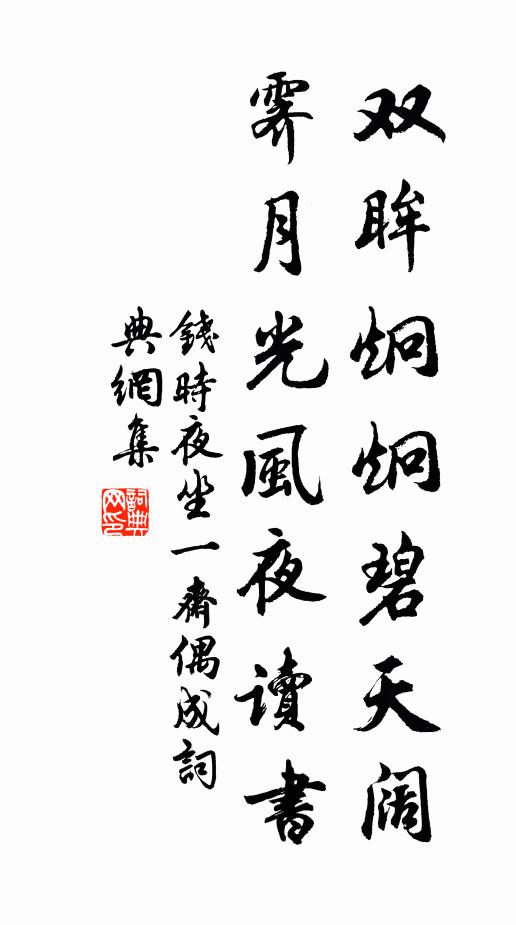 双眸炯炯碧天阔
霁月光風夜讀書
錢時夜坐一齋偶成詞
典網集
詞典网印